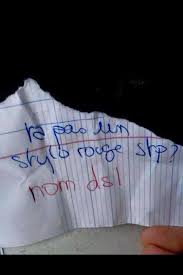 ta pas un
stylo rouge stp?
nom dsl